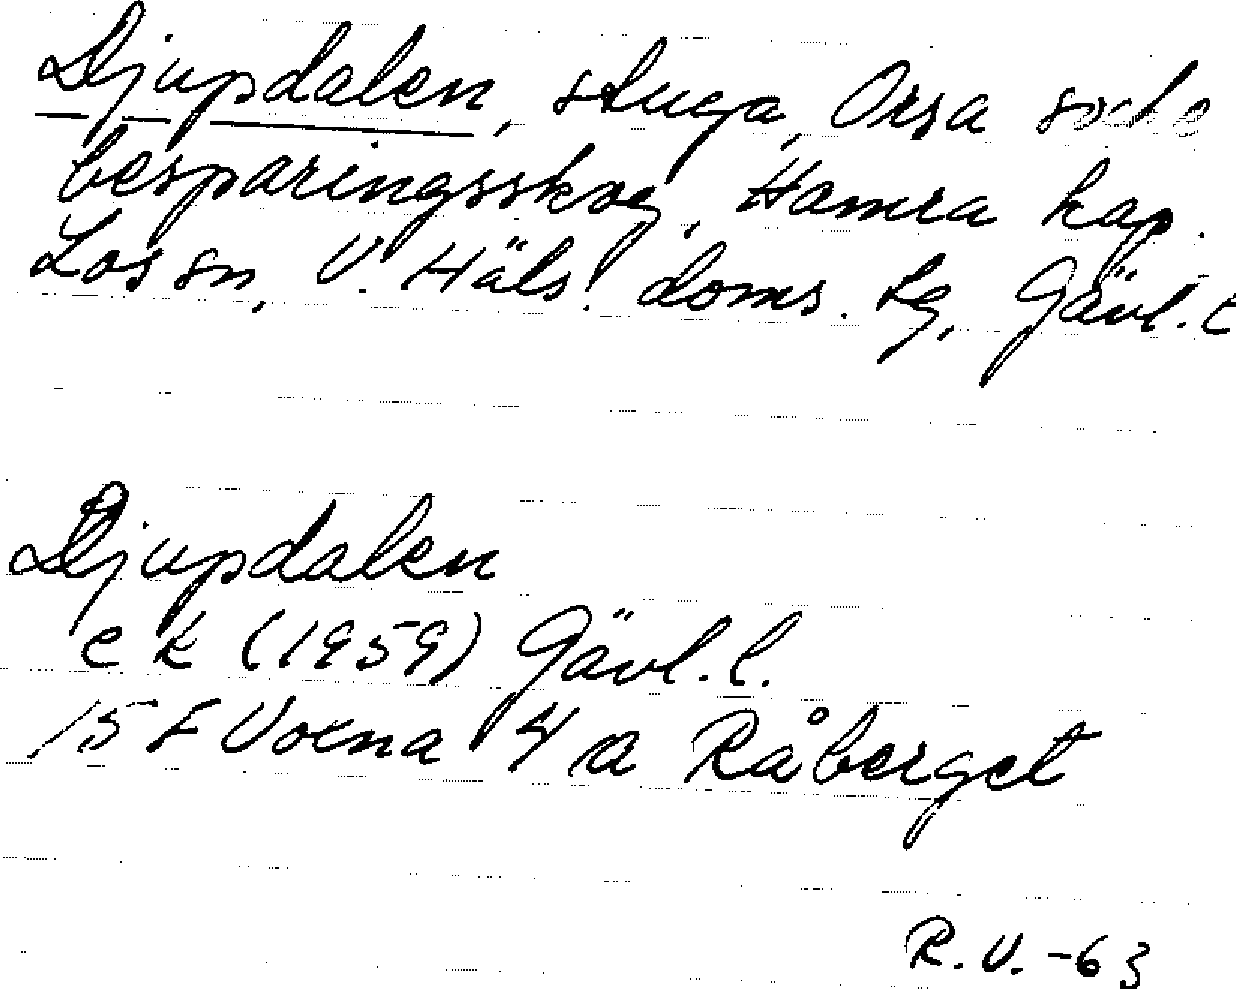 Djupdalen, stuga, Orsa socke
besparingsskog, Hamra kap.
Los sn, V. Häls. doms. tg, Gävl. l
Djupdalen
e k (1959) Gävl. l.
15 F Voxna 4 a Råberget
R. V. -63